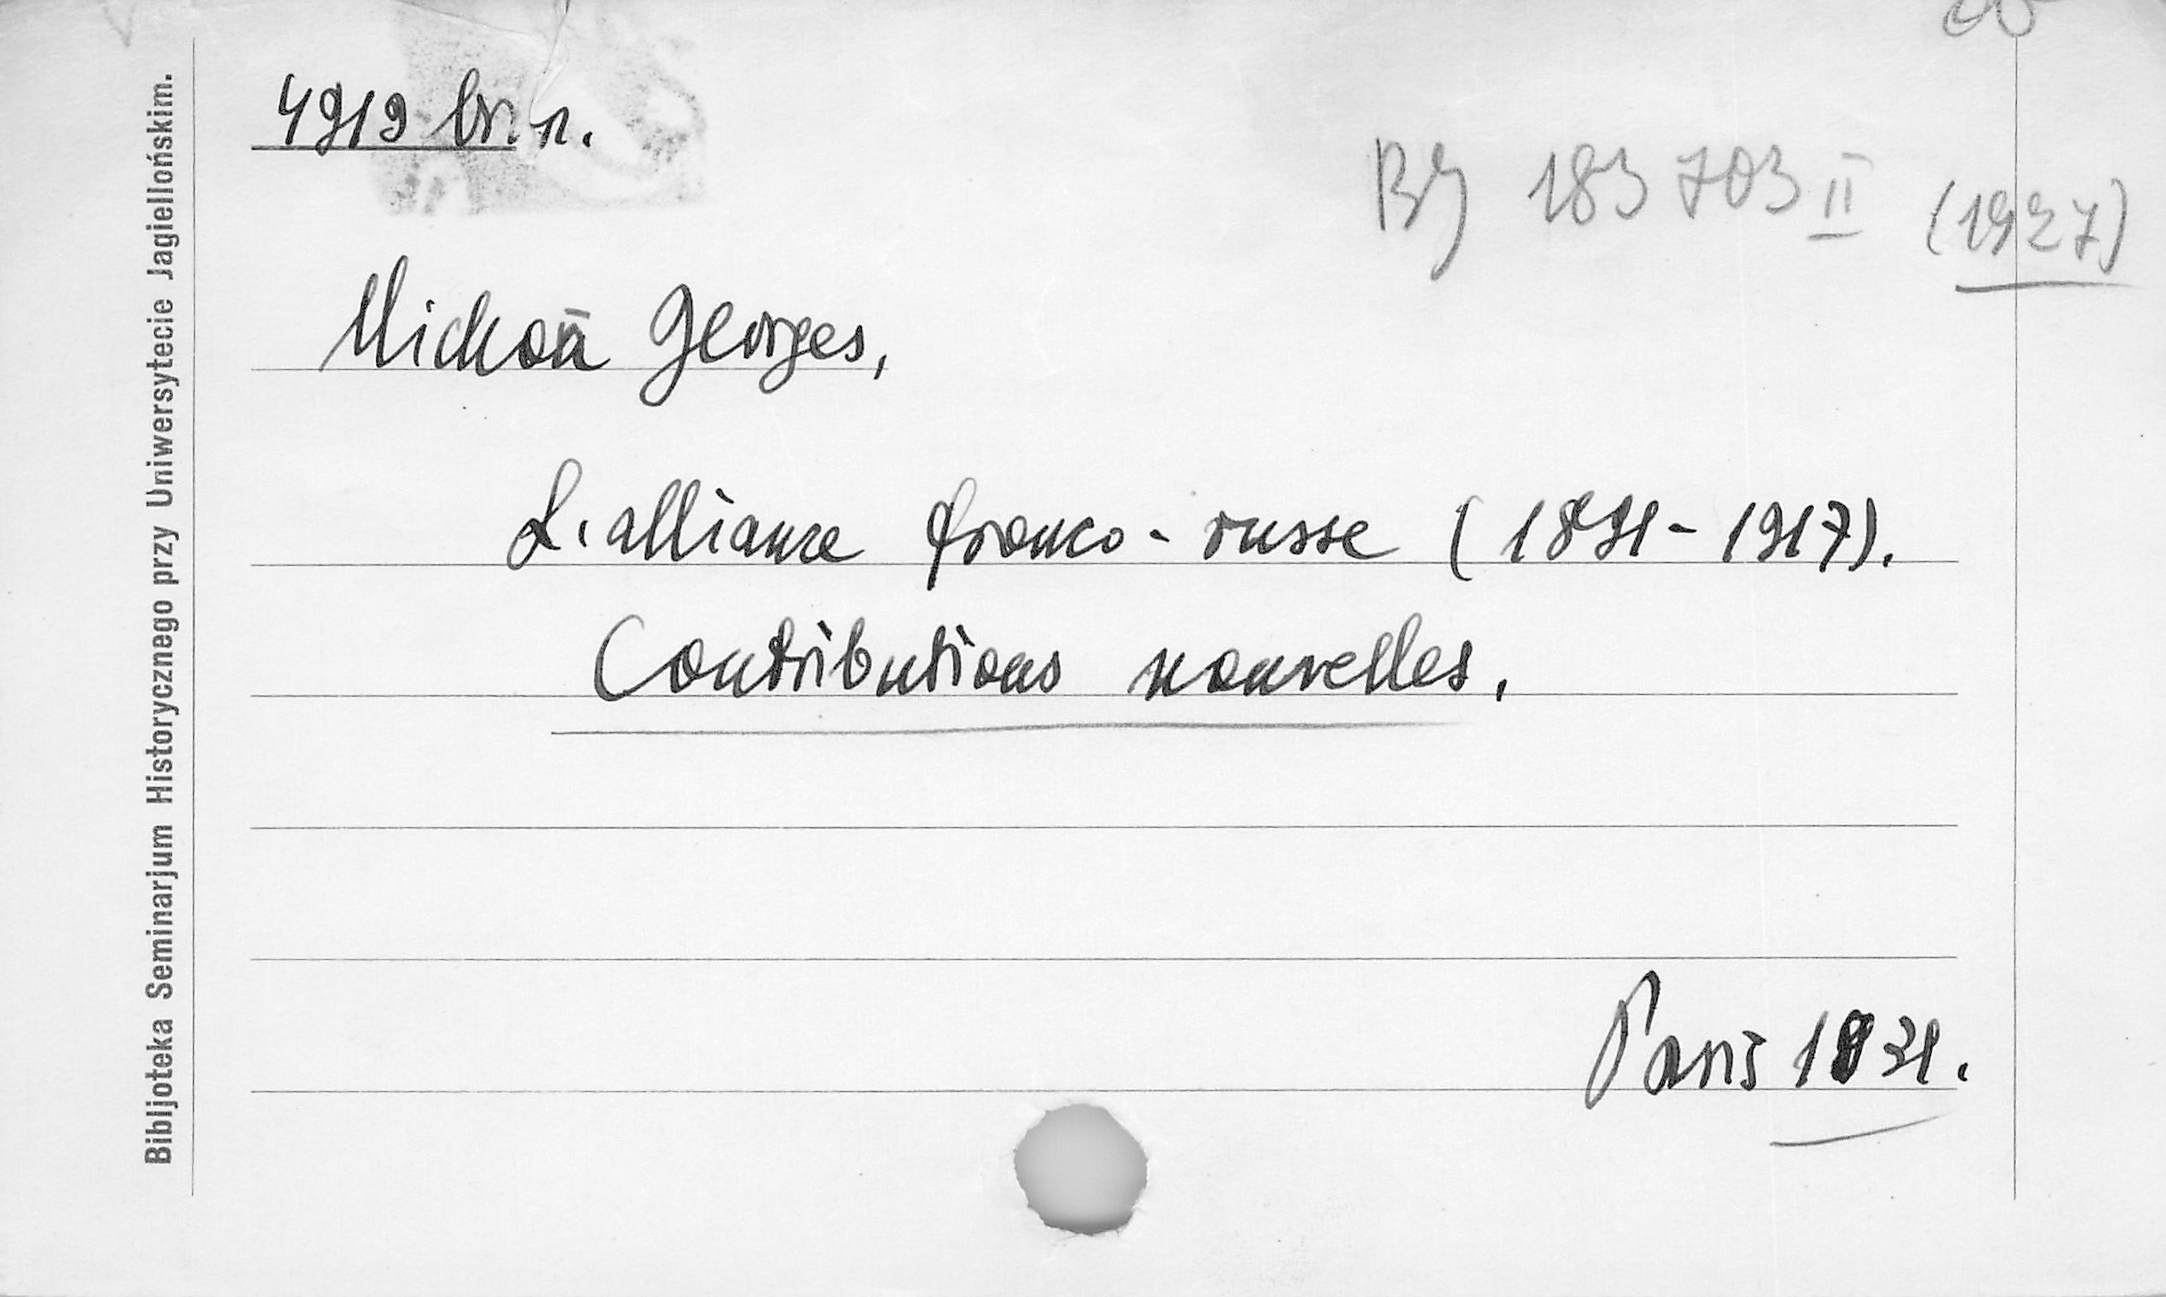 4919 br. n.
BJ 183703 II (1927)
Michon Georges,
L'alliance franco-russe (1891-1917).
Contributions nouvelles.
Paris 1931.
Bibljoteka Seminarjum Historycznego przy Uniwersytecie Jagiellońskim.